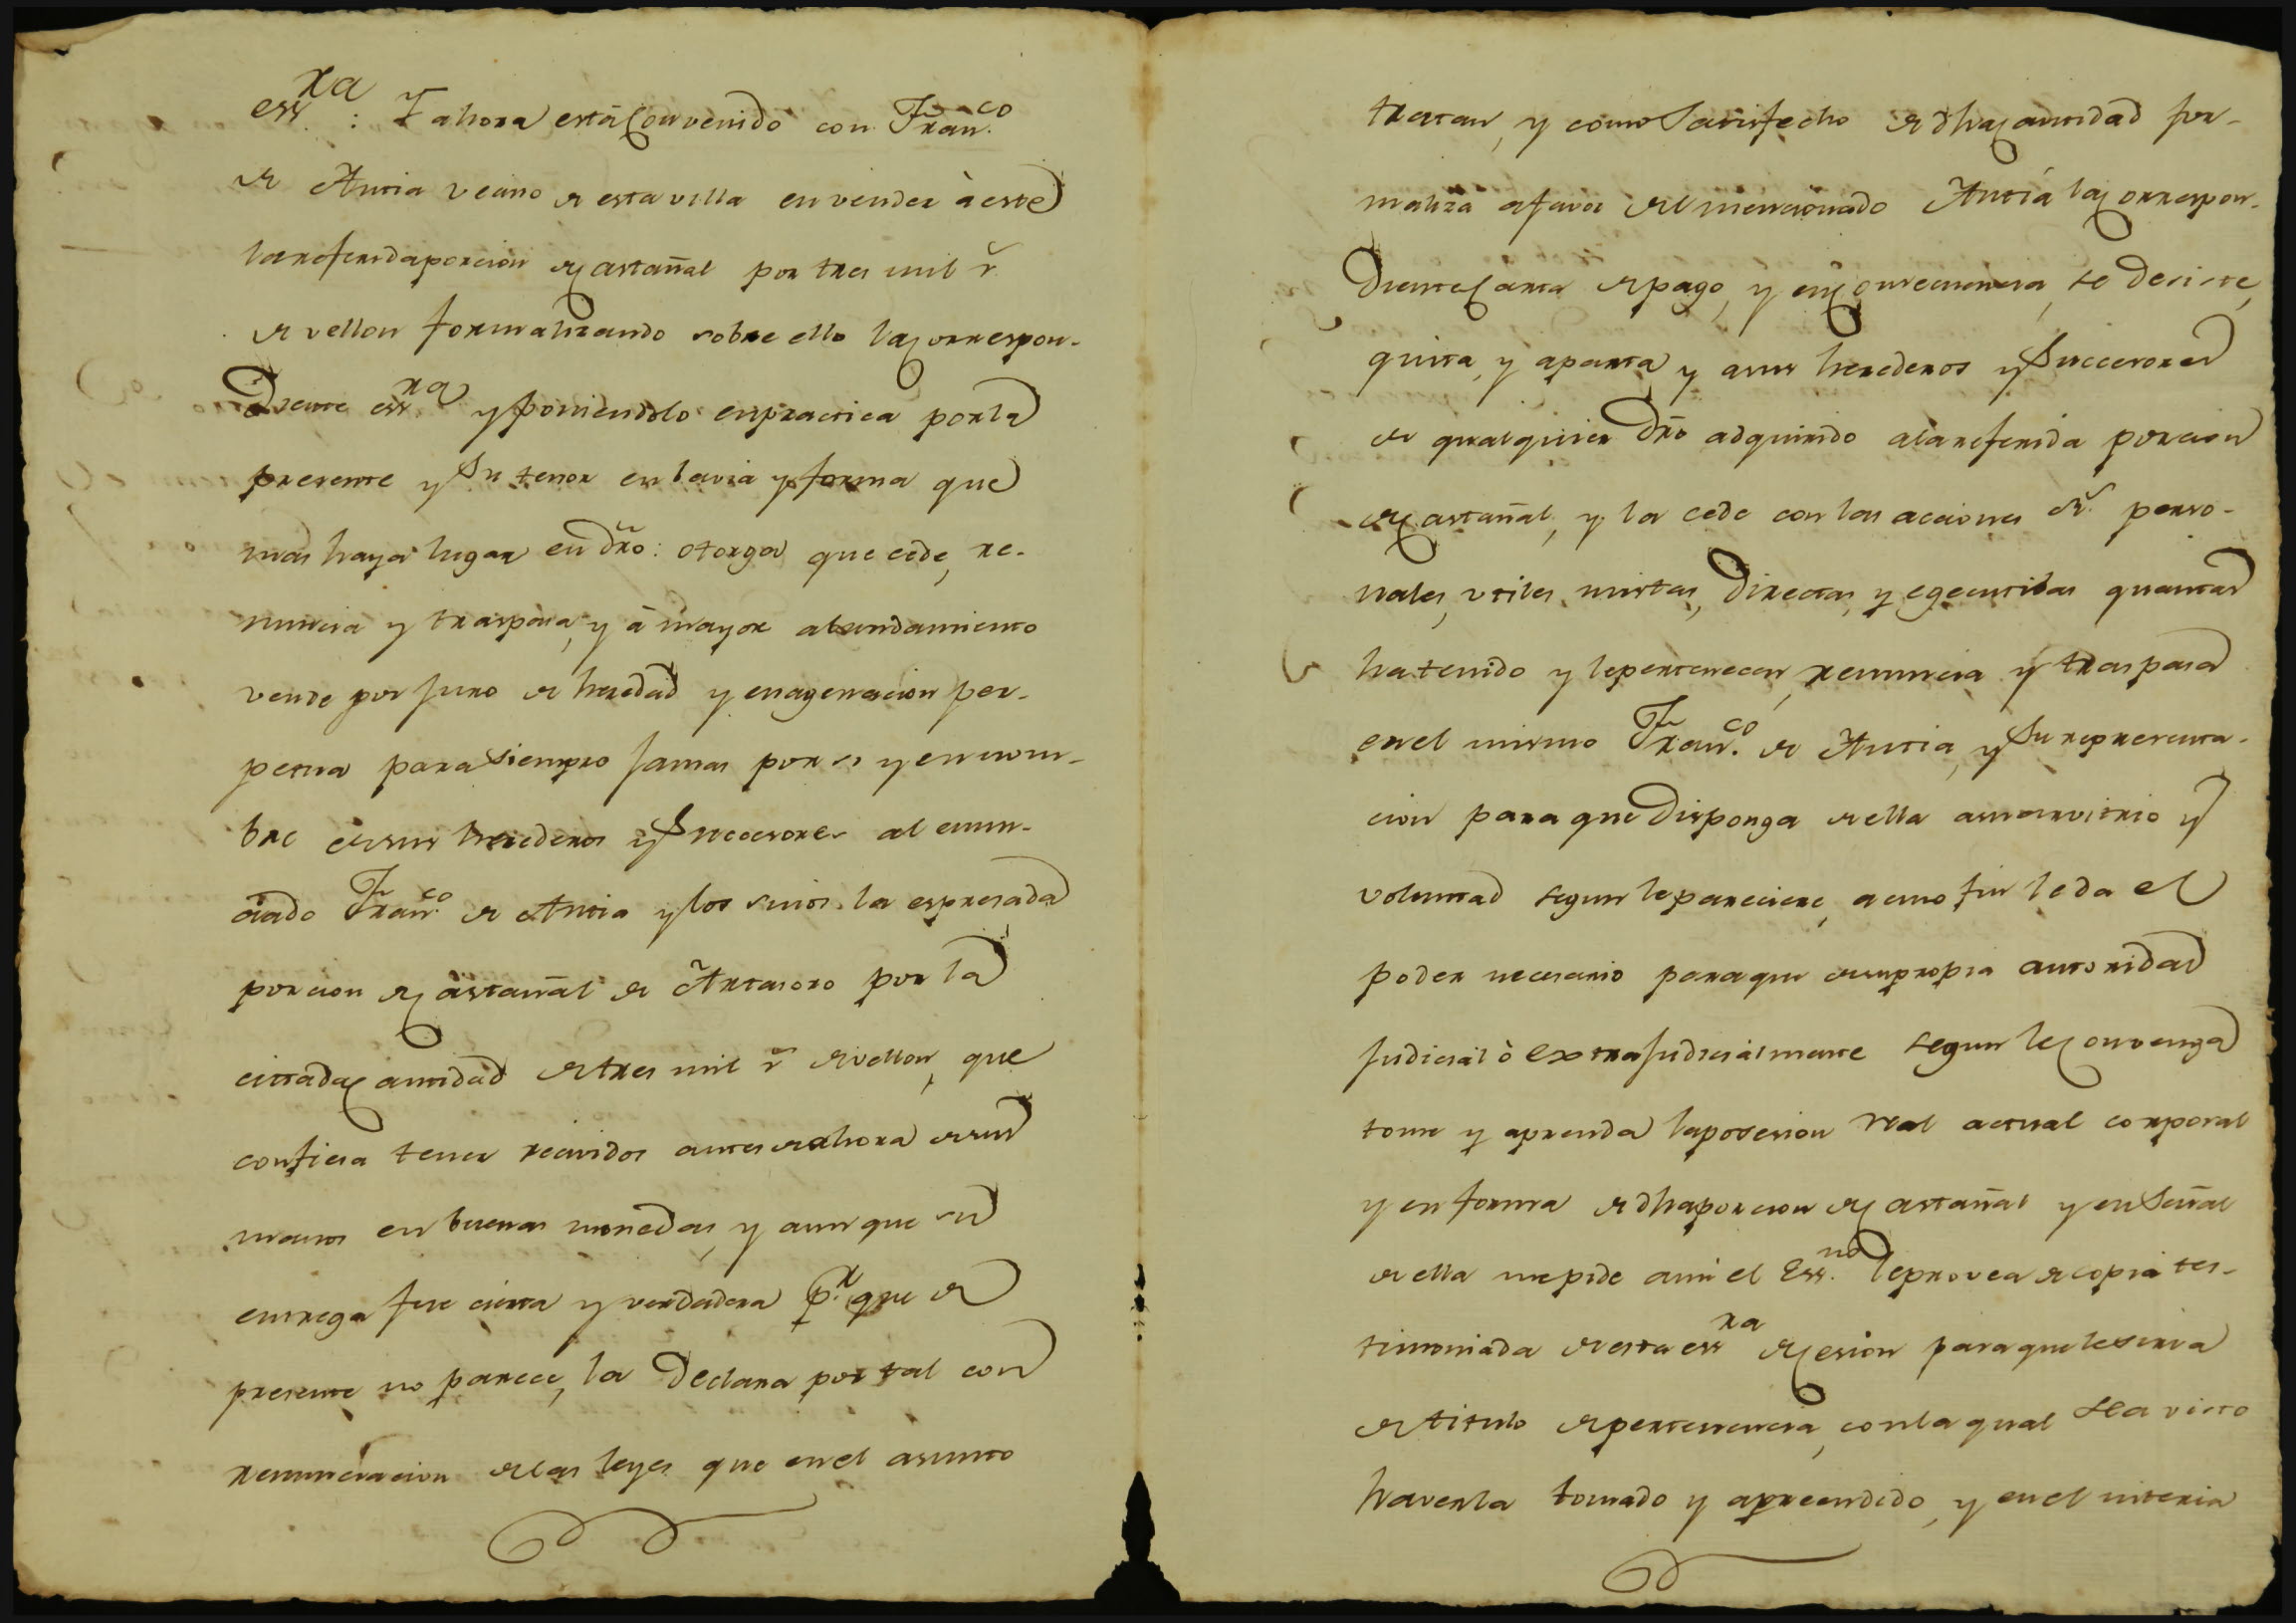 essra: Y ahora está Convenido con Franco
de Antia vecino de esta villa en vender à este
la referida porcion de Castañal por tres mil r.
de vellon formalizando sobre ello la Correspon-
Diente essra y poniendolo en practica por la
presente y Su tenor en la via y forma que
mas haya lugar en dro: otorga que cede, re-
nuncia y traspasa, y à mayor abundamiento
vende por Juro de heredad y enagenacion per-
petua para Siempre Jamas por si y en nom-
bre de sus herederos y Succesores al enun-
ciado Franco de Antia y los suios la espresada
porcion de Castañal de Artasoro por la
citada Cantidad de tres mil r de vellon, que
confiesa tener recividos antes de ahora de sus
manos en buenas monedas, y aunque su
entrega fue cierta y verdadera pr. que de
presente no parece, la Declara por tal con
renunciacion de las leyes que en el asunto
tratan, y como Satisfecho de dha Cantidad for-
maliza a favor del mencionado Antia la Correspon-
Diente Carta de pago, y en Consecuencia, se desiste,
quita, y aparta, y a sus herederos y Succesores
de qualquier Dro adquirido a la referida porcion
de Castañal, y la cede con las acciones rs. perso-
nales, utiles, mistas, Directas, y egecutibas quantas
ha tenido y le pertenecen, renuncia y traspasa
en el mismo Franco. de Antia, y Su representa-
cion para que Disponga de ella a su arvitrio y
voluntad segun le pareciere, a cuio fin le da el
poder necesario para que de su propia autoridad
Judicial ò extraJudicialmente segun le Convenga
tome y aprenda la posesion real actual corporal
y en forma de dha porcion de Castañal y en Señal
de ella me pide a mi el Essno. le provea de copia tes-
timoniada de esta essra de Cesion para que le sirva
de titulo de pertenencia, con la qual sea visto
haverla tomado y apreendido, y en el interin